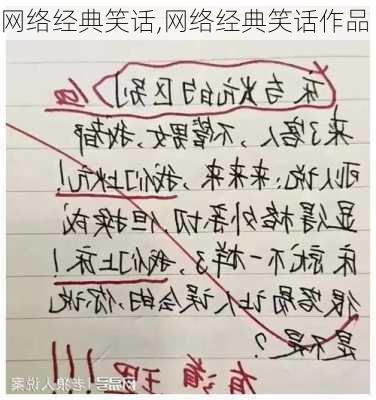 网络经典笑话,网络经典笑话作品
床与炕的区别
来了客人，不管男女，我都
可以说：来来来，我们上炕！
显得格外亲切，但换成
床就不一样了，我们上床！
很容易让人误会的，你说
是不是？
网易号 | 老狼人说案